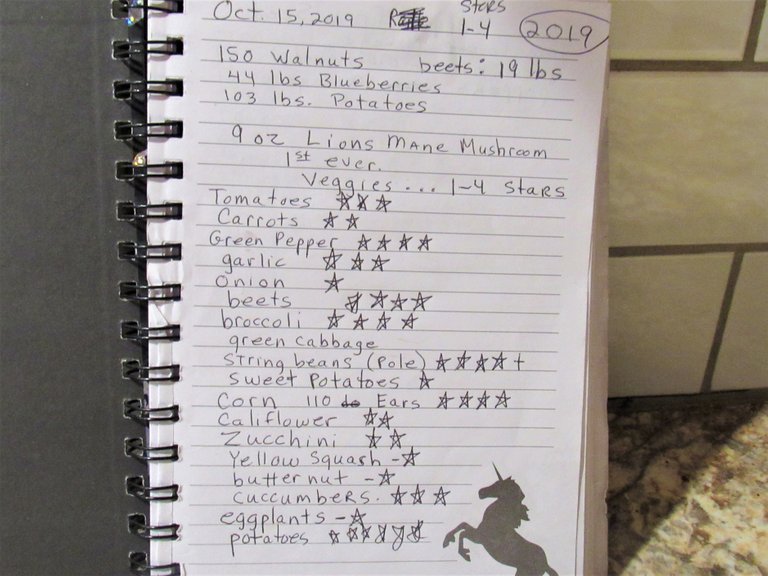 Oct. 15, 2019 Stars 1-4 2019
150 Walnuts beets: 19 lbs
44 lbs Blueberries
103 lbs. Potatoes
9 oz Lions Mane Mushroom
1st ever.
Veggies... 1-4 Stars
Tomatoes ☆☆☆
Carrots ☆☆
Green Pepper ☆☆☆☆
garlic ☆☆☆
Onion ☆
beets ☆☆☆☆
broccoli ☆☆☆☆
green cabbage
String beans (Pole) ☆☆☆☆+
Sweet Potatoes ☆
Corn 110 Ears ☆☆☆☆
Califlower ☆☆
Zucchini ☆☆
Yellow Squash -☆
butternut -☆
cuccumbers. ☆☆☆
eggplants -☆
potatoes ☆☆☆☆☆☆